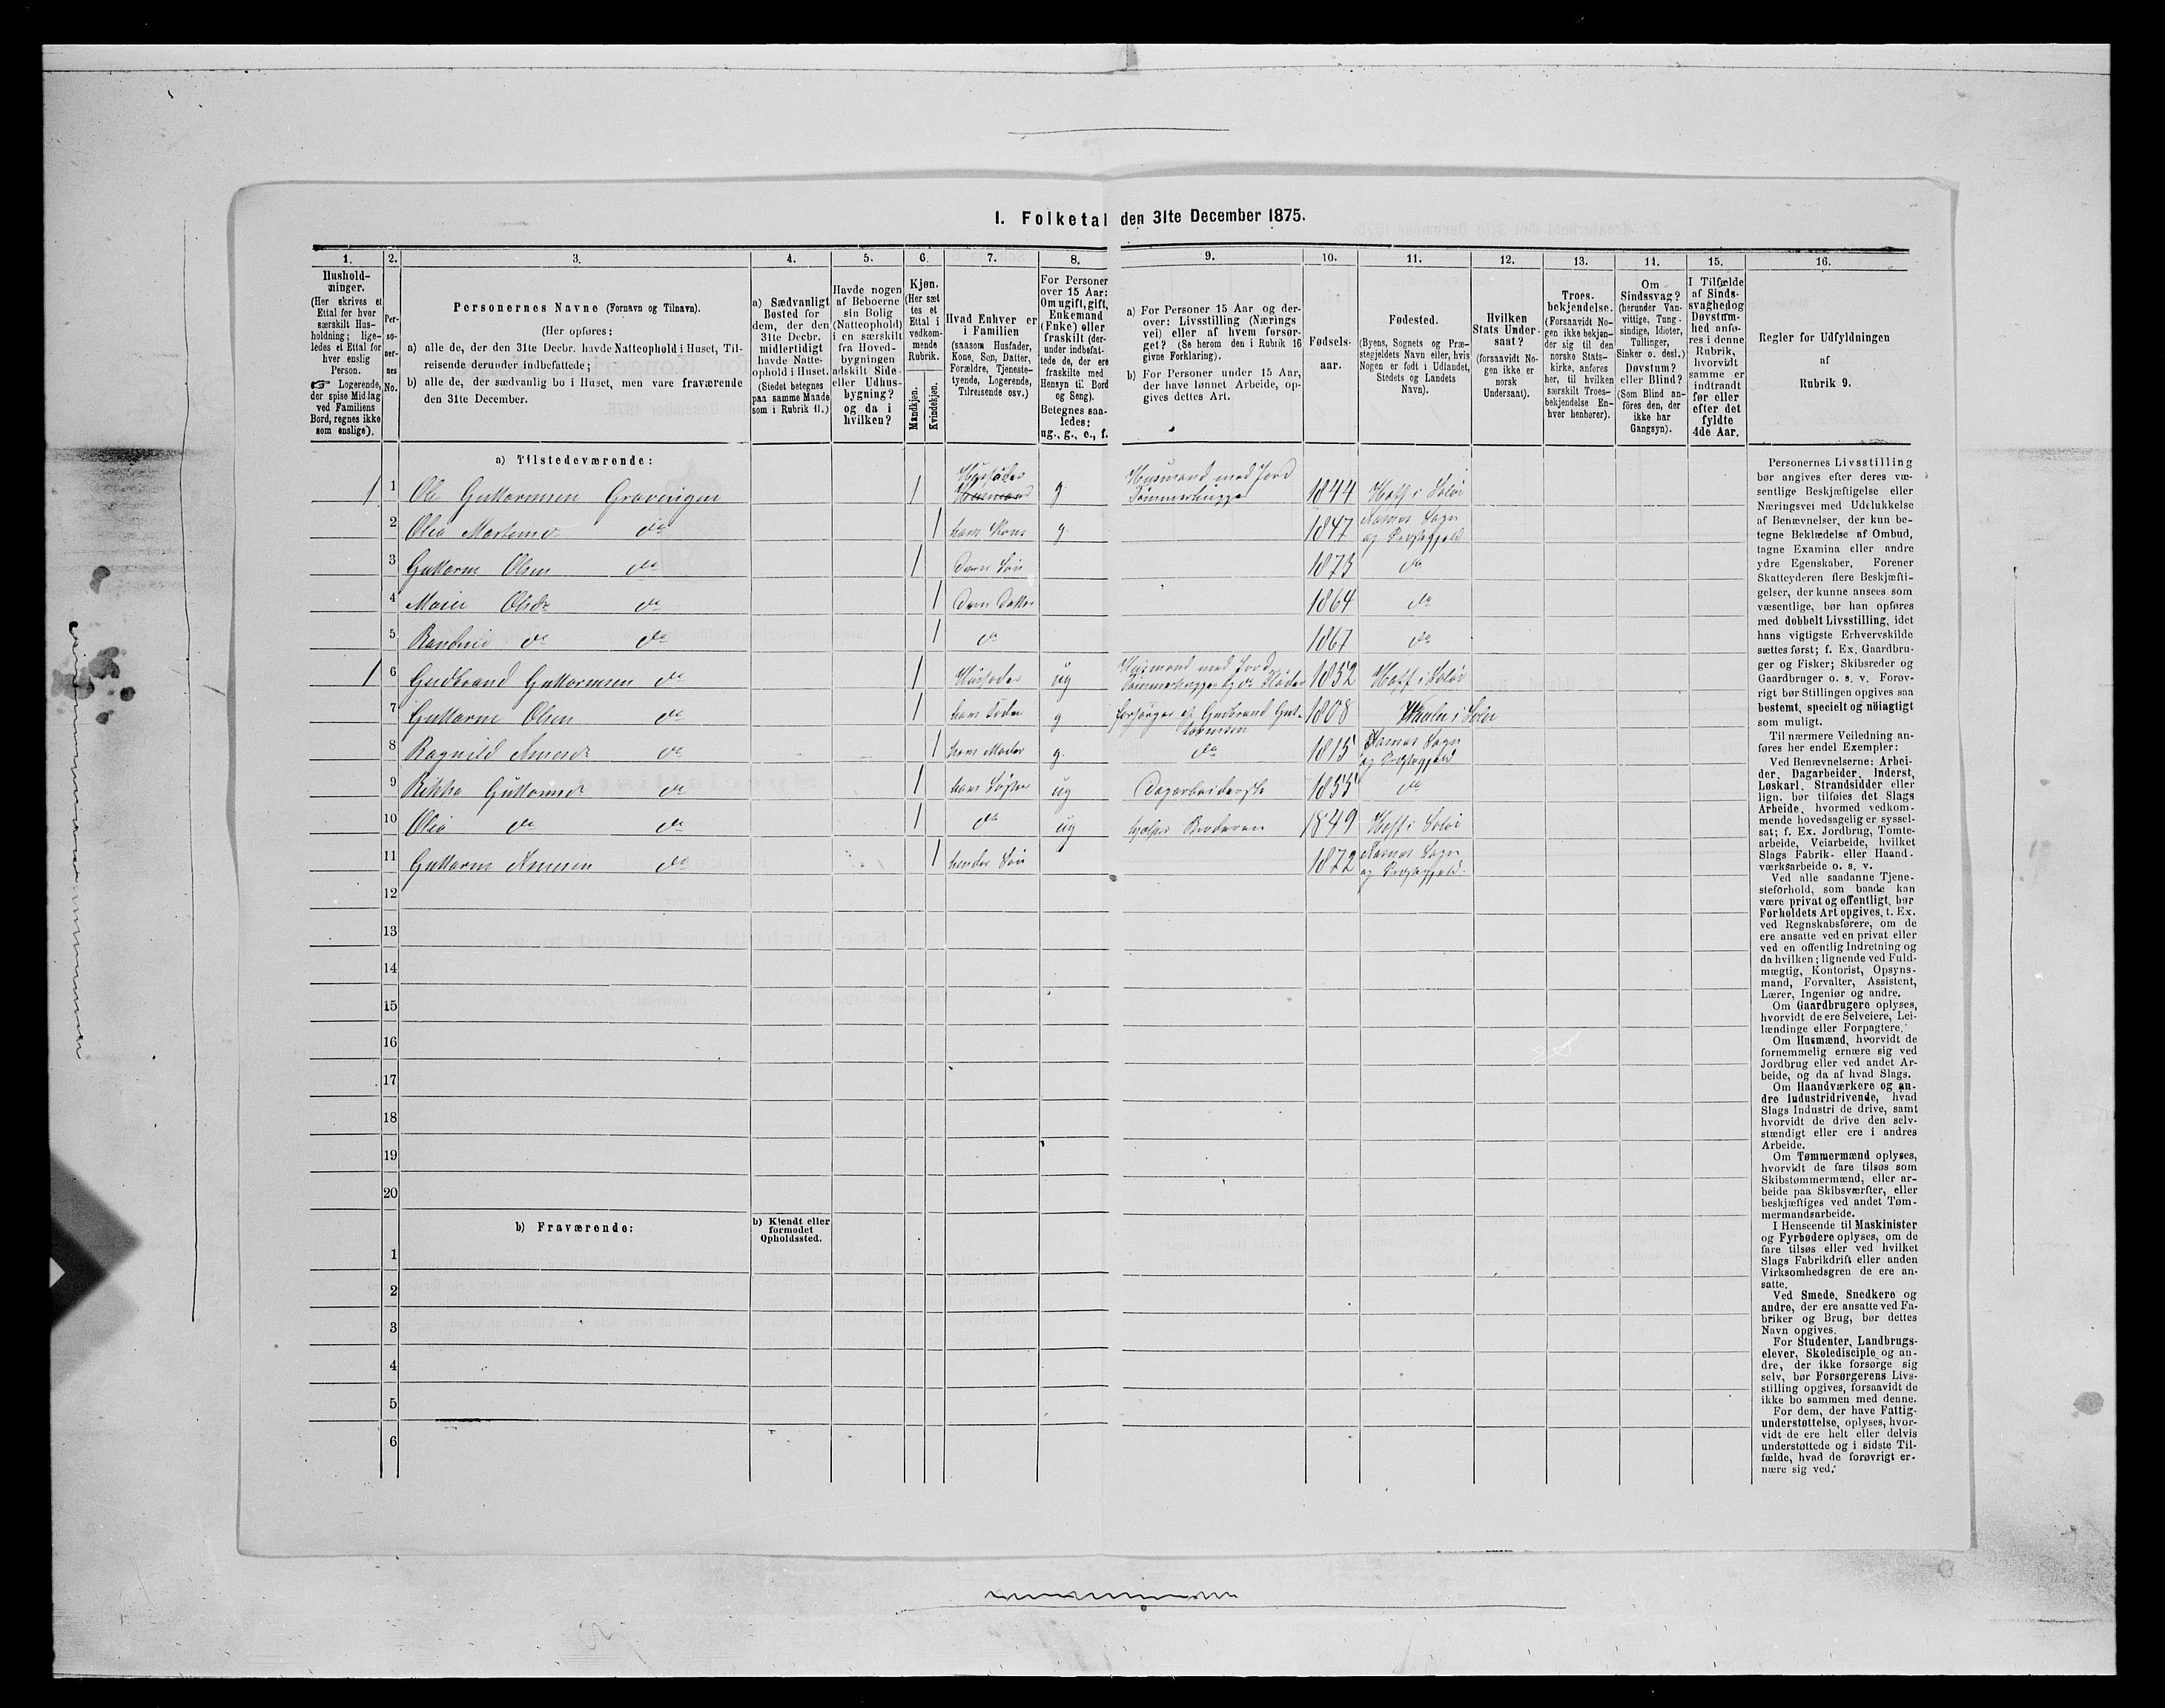 1. Folketal den 31te December 1875.
1. 2. 3. 4. 5. 6. 7. 8. 9. 10. 11. 12. 13. 14. 15. 16.
Hushold-
ninger.
(Her skrives et
Ettal for hver
særskilt Hus-
holdning; lige-
ledes et Ettal for
hver enslig
Person.
☞ Logerende,
der spise Middag
ved Familiens
Bord, regnes ikke
som enslige).
Per-
so-
ner-
nes
No.
Personernes Navne (Fornavn og Tilnavn).
(Her opføres:
a) alle de, der den 31te Decbr. havde Natteophold i Huset, Til-
reisende derunder indbefattede;
b) alle de, der sædvanlig bo i Huset, men vare fraværende
den 31te December.
a) Sædvanligt
Bosted for
dem, der den
31te Decbr.
midlertidigt
havde Natte-
ophold i Huset.
(Stedet betegnes
paa samme Maade
som i Rubrik 11.)
Havde nogen
af Beboerne
sin Bolig
(Natteophold)
i en særskilt
fra Hoved-
bygningen
adskilt Side-
eller Udhus-
bygning?
og da i
hvilken?
Kjøn.
(Her sæt-
tes et
Ettal i
vedkom-
mende
Rubrik.
Mandkjøn.
Kvindekjøn.
Hvad Enhver er
i Familien
(saasom Husfader,
Kone, Søn, Datter,
Forældre, Tjeneste-
tyende, Logerende,
Tilreisende osv.)
For Personer
over 15 Aar:
Om ugift, gift,
Enkemand
(Enke) eller
fraskilt (der-
under indbefat-
tede de, der ere
fraskilte med
Hensyn til Bord
og Seng).
Betegnes saa-
ledes:
ug., g., e., f.
a) For Personer 15 Aar og der-
over: Livsstilling (Nærings
vei) eller af hvem forsør-
get? (Se herom den i Rubrik 16
givne Forklaring).
b) For Personer under 15 Aar,
der have lønnet Arbeide, op-
gives dettes Art.
Fødsels-
aar.
Fødested.
(Byens, Sognets og Præ-
stegjeldets Navn eller, hvis
Nogen er født i Udlandet,
Stedets og Landets
Navn).
Hvilken
Stats Under-
saat?
(forsaavidt No-
gen ikke er
norsk
Undersaat).
Troes-
bekjendelse.
(Forsaavidt No-
gen ikke bekjen-
der sig til den
norske Stats-
kirke, anføres
her, til hvilken
særskilt Troes-
bekjendelse En-
hver henhører).
Om
Sindssvag?
(herunder Van-
vittige, Tung-
sindige, Idioter,
Tullinger,
Sinker o. desl.)
Døvstum?
eller Blind?
(Som Blind an-
føres den, der
ikke har
Gangsyn).
I Tilfælde
af Sinds-
svaghed og
Døvstum-
hed anfø-
res i denne
Rubrik,
hvorvidt
samme er
indtraadt
før eller
efter det
fyldte
4de Aar.
Regler for Udfyldningen
af
Rubrik 9.
a) Tilstedeværende:
1 1 Ole Guttormsen Gravingen 1 Husfader Husmand g. Husmand med Jord Tømmerhugger 1844 Hoff i Solør
2 Olia Martensd do 1 hans Kone g. 1847 Aasnes Sogn og Prestegjeld
3 Guttorm Olsen do 1 Deres Søn 1873 do
4 Marie Olsdr do 1 Deres Datter 1864 do
5 do do 1 do 1867 do
1 6 Gudbrand Guttormsen do 1 Husfader ug Husmand med Jord 1852 Hoff i Solør
7 Guttorm Olsen do 1 hans Fader g forsørges af Gudbrand Gut-tormsen 1808 Vaaler i Solør
8 Ragnild Amundsdr do 1 hans Moder g. do 1815 Aasnes Sogn og Prestegjeld
9 Guttormsdr do 1 hans Søster ug Dagarbeiderske 1855 do
10 Olia do do 1 do ug hjælper Broderen 1849 Hoff i Solør
11 Guttorm do 1 hendes Søn 1872 Aasnes Sogn og Prestegjeld.
12
13
14
15
16
17
18
19
20
b) Fraværende:
b) Kjendt eller
formodet
Opholdssted.
1
2
3
4
5
6
Personernes Livsstilling
bør angives efter deres væ-
sentlige Beskjæftigelse eller
Næringsvei med Udelukkelse
af Benævnelser, der kun be-
tegne Beklædelse af Ombud,
tagne Examina eller andre
ydre Egenskaber. Forener
Skatteyderen flere Beskjæfti-
gelser, der kunne ansees som
væsentlige, bør han opføres
med dobbelt Livsstilling, idet
hans vigtigste Erhvervskilde
sættes først; f. Ex. Gaardbru-
ger og Fisker; Skibsreder og
Gaardbruger o. s. v. Forøv-
rigt bør Stillingen opgives saa
bestemt, specielt og nøiagtigt
som muligt.
Til nærmere Veiledning an-
føres her endel Exempler:
Ved Benævnelserne: Arbei-
der, Dagarbeider, Inderst,
Løskarl, Strandsidder eller
lign. bør tilføies det Slags
Arbeide, hvormed vedkom-
mende hovedsagelig er syssel-
sat; f. Ex. Jordbrug, Tomte-
arbeide, Veiarbeide, hvilket
Slags Fabrik- eller Haand-
værksarbeide o. s. v.
Ved alle saadanne Tjene-
steforhold, som baade kan
være privat og offentligt, bør
Forholdets Art opgives, t. Ex.
ved Regnskabsførere, om de
ere ansatte ved en privat eller
ved en offentlig Indretning og
da hvilken; lignende ved Fuld-
mægtig, Kontorist, Opsyns-
mand, Forvalter, Assistent,
Lærer, Ingeniør og andre.
Om Gaardbrugere oplyses,
hvorvidt de ere Selveiere, Lei-
lændinge eller Forpagtere.
Om Husmænd, hvorvidt de
fornemmelig ernære sig ved
Jordbrug eller ved andet Ar-
beide, og da af hvad Slags.
Om Haandværkere og an-
dre Industridrivende, hvad
Slags Industri de drive, samt
hvorvidt de drive den selv-
stændigt eller ere i andres
Arbeide.
Om Tømmermænd oplyses,
hvorvidt de fare tilsøs som
Skibstømmermænd, eller ar-
beide paa Skibsværfter, eller
beskjæftiges ved andet Tøm-
mermandsarbeide.
I Henseende til Maskinister
og Fyrbødere oplyses, om de
fare tilsøs eller ved hvilket
Slags Fabrikdrift eller anden
Virksomhedsgren de ere an-
satte.
Ved Smede, Snedkere og
andre, der ere ansatte ved Fa-
briker og Brug, bør dettes
Navn opgives.
For Studenter, Landbrugs-
elever, Skoledisciple og an-
dre, der ikke forsørge sig
selv, bør Forsørgerens Livs-
stilling opgives, forsaavidt de
ikke bo sammen med denne.
For dem, der have Fattig-
understøttelse, oplyses, hvor-
vidt de ere helt eller delvis
understøttede og i sidste Til-
fælde, hvad de forøvrigt er-
nære sig ved.